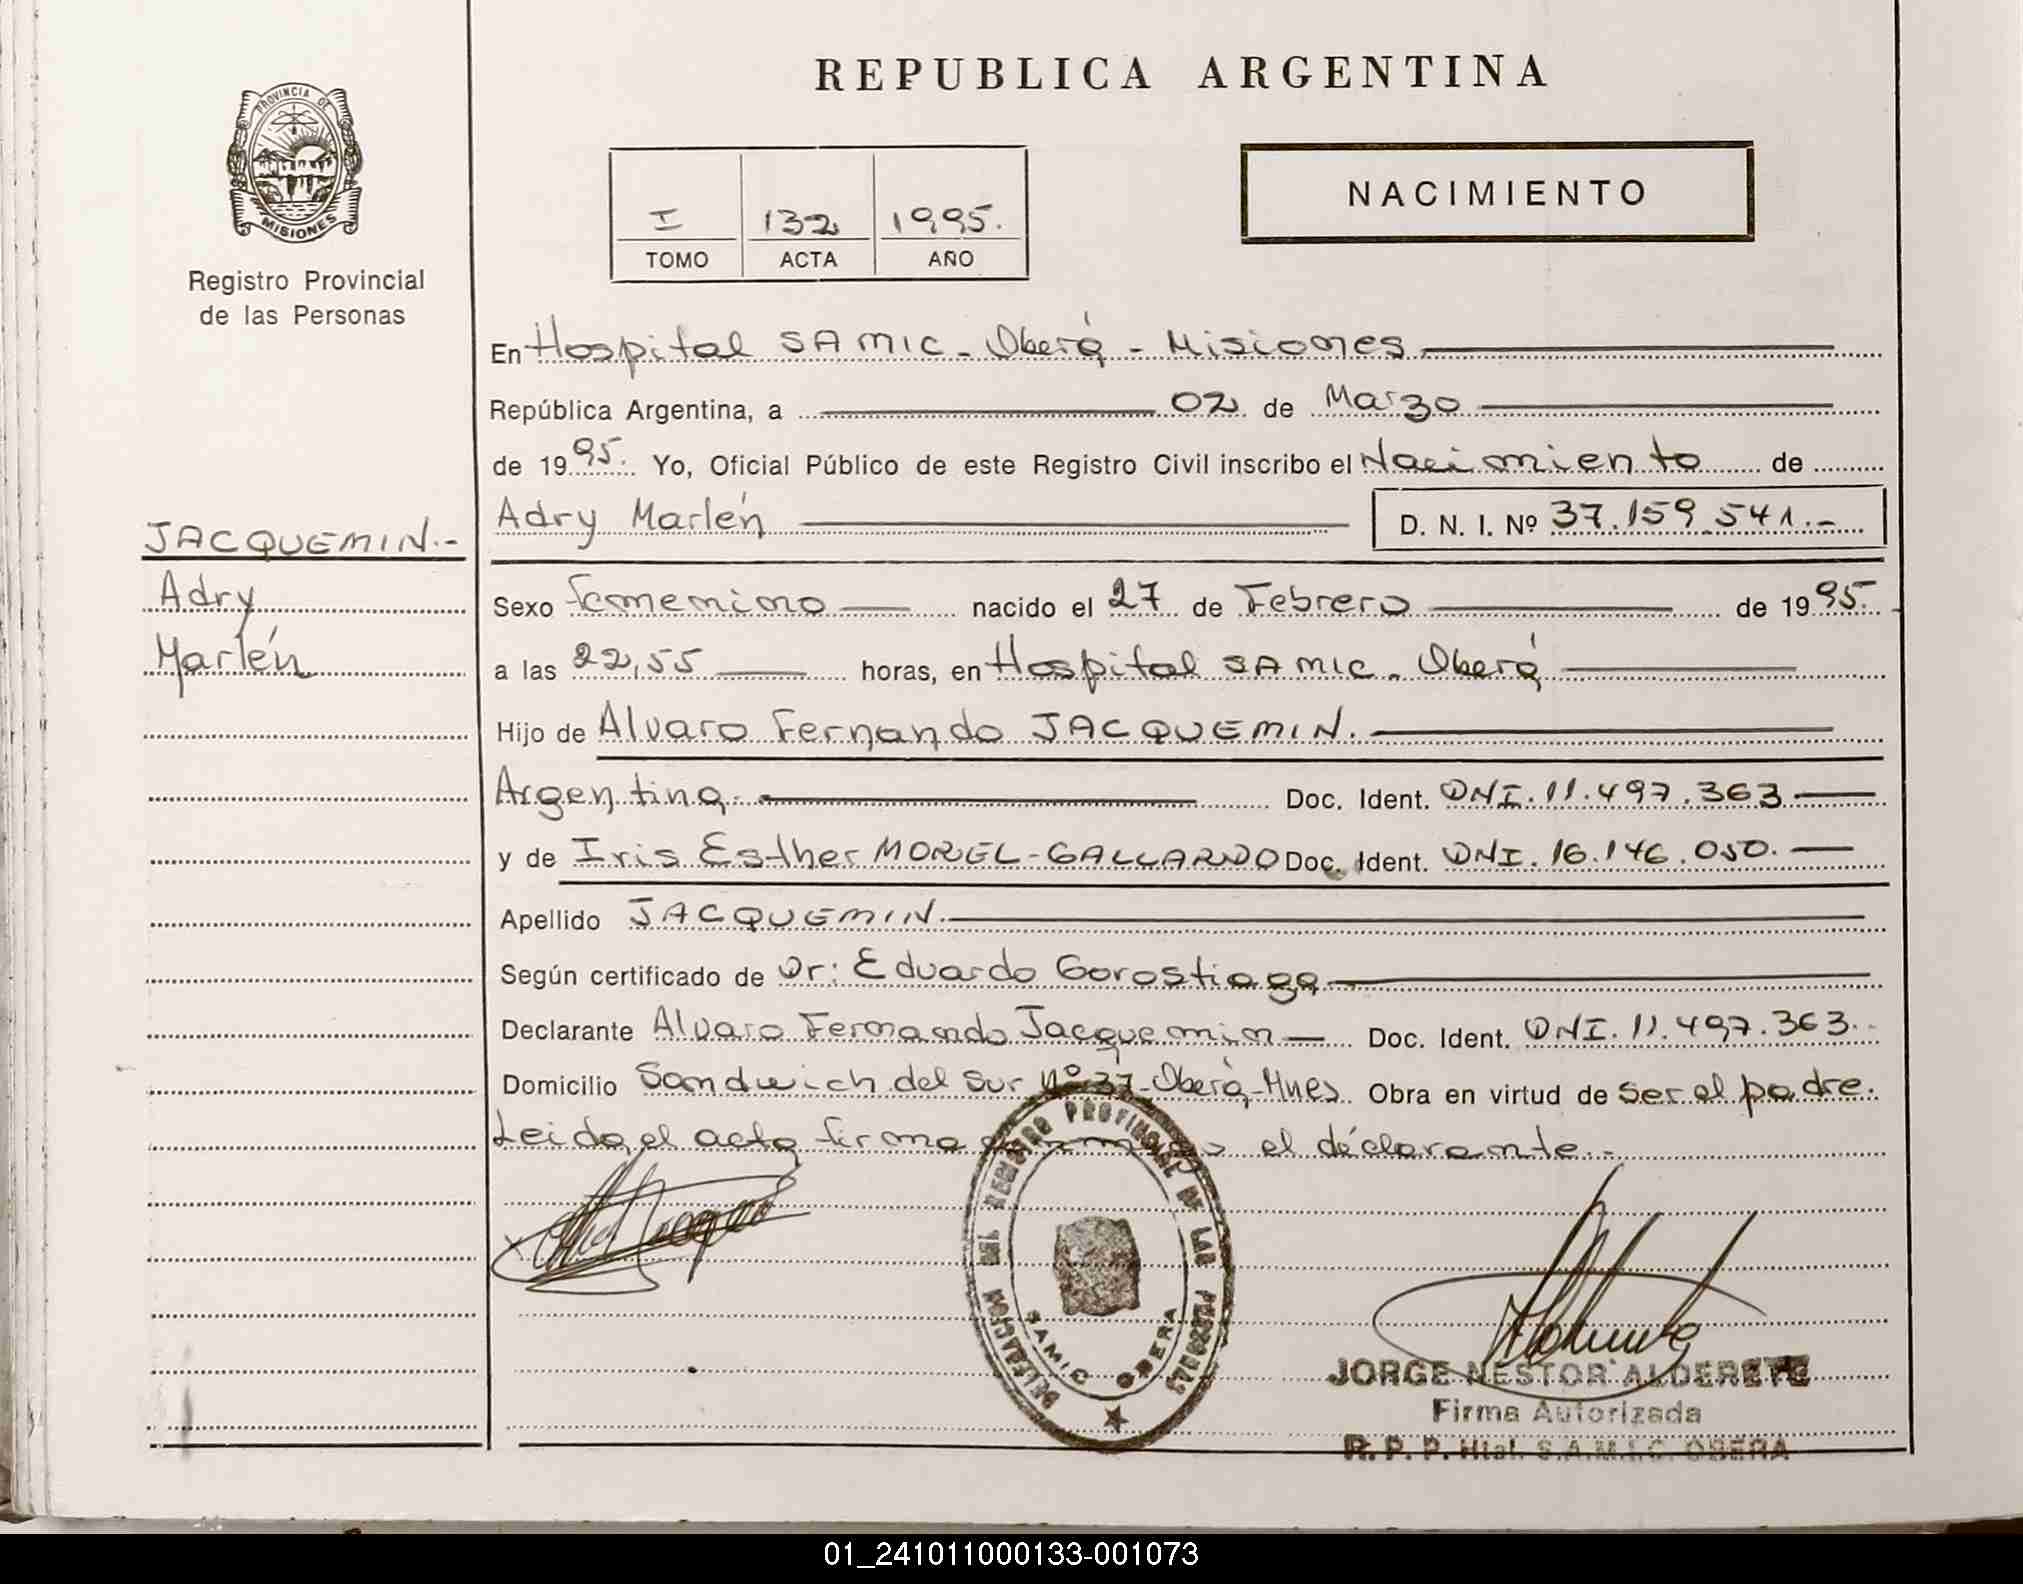 REPUBLICA ARGENTINA
PROVINCIA DE
MISIONES
Registro Provincial
de las Personas
NACIMIENTO
I 132 1995.
TOMO ACTA AÑO
En Hospital SAMIC - Oberá - Misiones
República Argentina, a 02 de Marzo
de 1995. Yo, Oficial Público de este Registro Civil inscribo el Nacimiento de
Adry Marlén D. N. I. Nº 37.159.541.-
JACQUEMIN.-
Adry
Marlén
Sexo femenino nacido el 27 de Febrero de 1995.
a las 22,55 horas, en Hospital SAMIC - Oberá
Hijo de Alvaro Fernando JACQUEMIN.
Argentina Doc. Ident. DNI. 11.497.363
y de Iris Esther MOREL-GALLARDO Doc. Ident. DNI. 16.146.050.
Apellido JACQUEMIN.
Según certificado de Dr: Eduardo Gorostiaga
Declarante Alvaro Fernando Jacquemin Doc. Ident. DNI. 11.497.363.
Domicilio Sandwich del Sur Nº 37-Oberá-Mnes Obra en virtud de ser el padre.
Leida el acta firma el declarante.-
DELEGACION DEL REGISTRO PROVINCIAL DE LAS PERSONAS
SAMIC OBERA
JORGE NESTOR ALDERETE
Firma Autorizada
R. P. P. Htal. S.A.M.I.C. OBERA
01_241011000133-001073